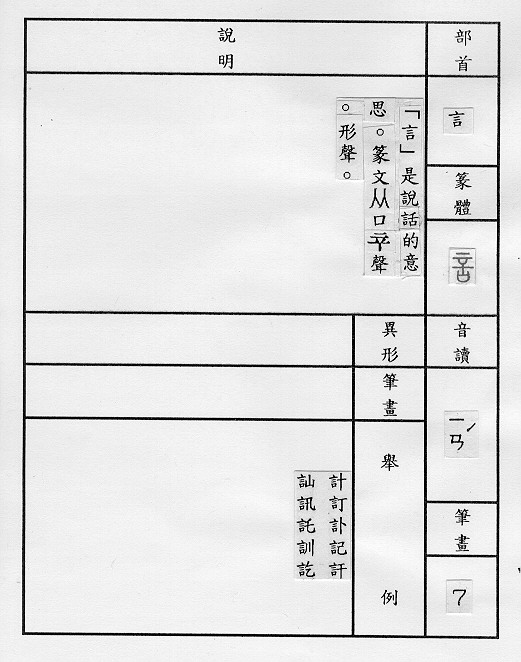 部首
言
篆體
音讀
ㄧㄢˊ
筆畫
7
說明
「言」是說話的意
思。篆文从口䇂聲
。形聲。
異形
筆畫
舉例
計訂訃記訐
訕訊託訓訖